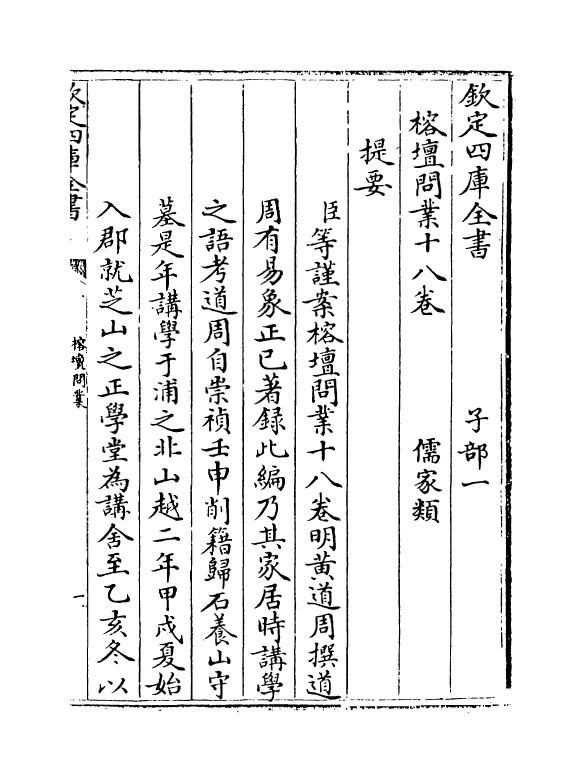 欽定四庫全書　　　　子部一
榕壇問業十八卷　　　儒家類
提要
臣等謹案榕壇問業十八卷明黄道周撰道
周有易象正已著録此編乃其家居時講學
之語考道周自崇禎壬申削籍歸石養山守
墓是年講學于浦之北山越二年甲戌夏始
入郡就芝山之正學堂為講舍至乙亥冬以
欽定四庫全書
榕壇問業
一